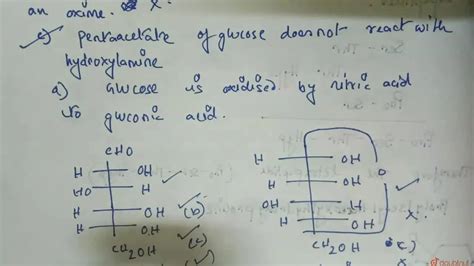 an oxime. X.
c) pentaacetate of glucose does not react with
hydroxylamine
a) Glucose is oxidised by nitric acid
to gluconic acid.
CHO
H OH
HO H
H OH (b)
H OH (c)
CH2OH
H OH
H OH O
OH H
H X.
CH2OH c)
X
doubtnut